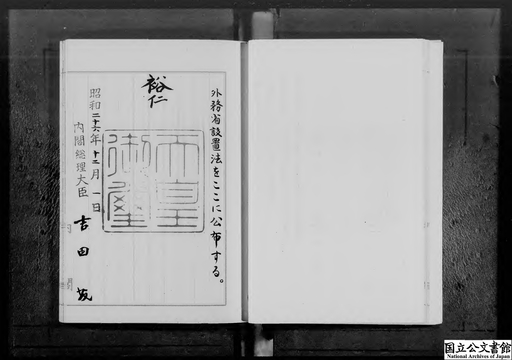 外務省設置法をここに公布する。
裕仁
天皇御璽
昭和二十六年十二月一日
内閣総理大臣 吉田茂
国立公文書館
National Archives of Japan